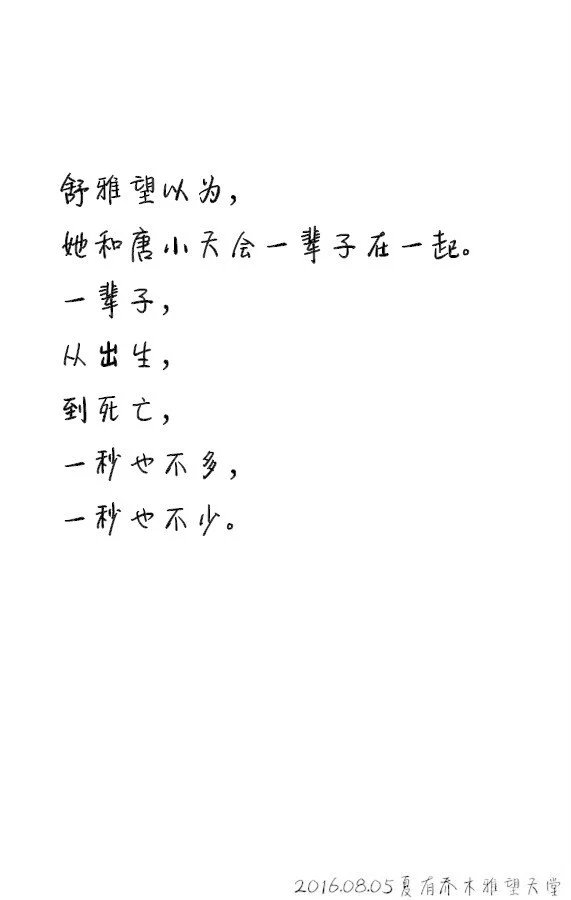 舒雅望以为，
她和唐小天会一辈子在一起。
一辈子，
从出生，
到死亡，
一秒也不多，
一秒也不少。
2016.08.05夏有乔木雅望天堂